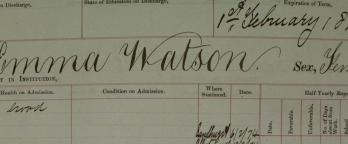 on Discharge, State of Education on Discharge, Expiration of Term,
1st February 18
Emma Watson. Sex, Fem
T IN INSTITUTION,
Health on Admission. Condition on Admission. Where Stationed. Date. Half Yearly Repo
Good
Date. Favorable. Unfavorable. No. of Days absent from Work.
Sandhurst 6/2/74